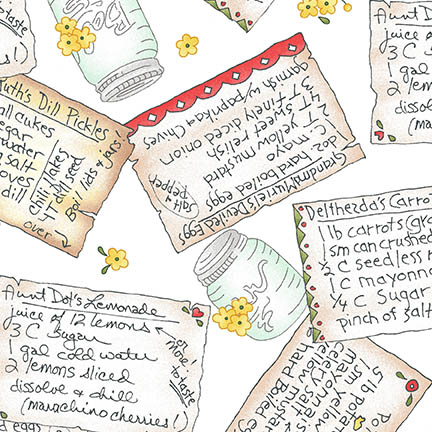 taste
Aunt Dot's
juice of
3 C
1 gal
2 lem
dissolve
(maras
uth's Dill Pickles
all cukes
egar
water
salt
oves
dill
chili flakes
4 T dill seed
Boil lids & jars!
over
Grandma Muriel's Deviled Eggs
doz hard boiled eggs
C mayo
T yellow mustard
4 T sweet relish
3 T finely diced onion
Garnish w/paprika & chives
salt & pepper
Deltherda's Carrot
1 lb carrots (gra
1 sm can crushed
1/2 C seedless r
1 C mayonna
1/4 C Sugar
pinch of salt
Aunt Dot's Lemonade
juice of 12 lemons
3 C Sugar
1 gal cold water
2 lemons sliced
dissolve & chill
(maraschino cherries!)
or more! to taste
5 lb pota
5 sm yellow
mayonnais
yellow mustar
celery salt
hard Boiled
d eggs